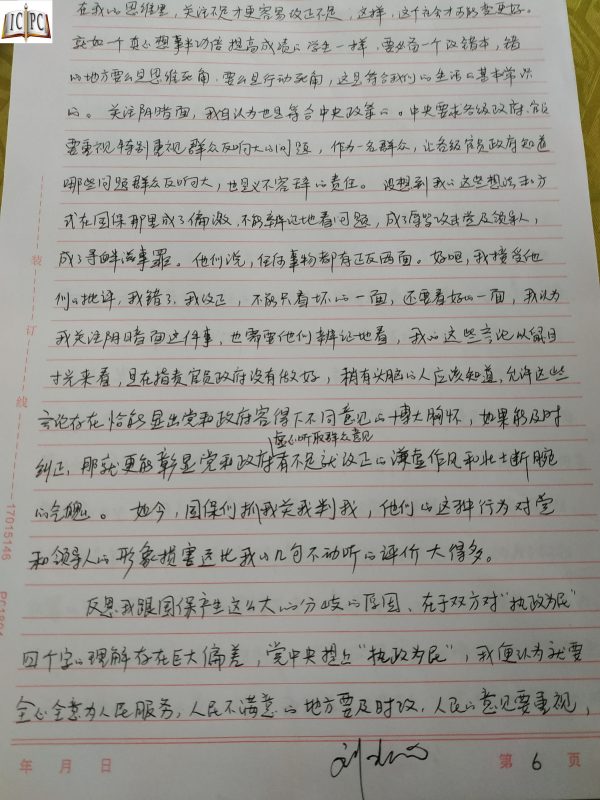 ICPC
在我的思维里，关注不足才更容易改正不足，这样，这个社会才可能变更好。
就如一个真心想事半功倍提高成绩的学生一样，要必有一个改错本，错
的地方要么是思维死角，要么是行动死角，这是符合我们的生活的基本常识
的。关注阴暗面，我自认为也是符合中央政策的。中央要求各级政府、官员
要重视特别重视群众反响大的问题，作为一名群众，让各级官员政府知道
哪些问题群众反响大，也是义不容辞的责任。没想到我的这些想法和方
式在国保那里成了偏激，不能辨证地看问题，成了辱骂攻击党及领导人，
成了寻衅滋事罪。他们说，任何事物都有正反两面。好吧，我接受他
们的批评，我错了，我改正，不能只看坏的一面，还要看好的一面，我认为
我关注阴暗面这件事，也需要他们辨证地看，我的这些言论以鼠目
寸光来看，是在指责官员政府没有做好，稍有头脑的人应该知道，允许这些
言论存在恰能显出党和政府容得下不同意见的博大胸怀，如果能及时
虚心听取群众意见
纠正，那就更能彰显党和政府有不足就改正的谦虚作风和壮士断腕
的气魄。如今，国保们抓我关我判我，他们的这种行为对党
和领导人的形象损害远比我的几句不动听的评价大得多。
反思我跟国保产生这么大的分歧的原因，在于双方对“执政为民”
四个字的理解存在巨大偏差，党中央提出“执政为民”，我便认为就要
全心全意为人民服务，人民不满意的地方要及时改，人民的意见要重视，
装
订
线
17015146
年 月 日
第 6 页